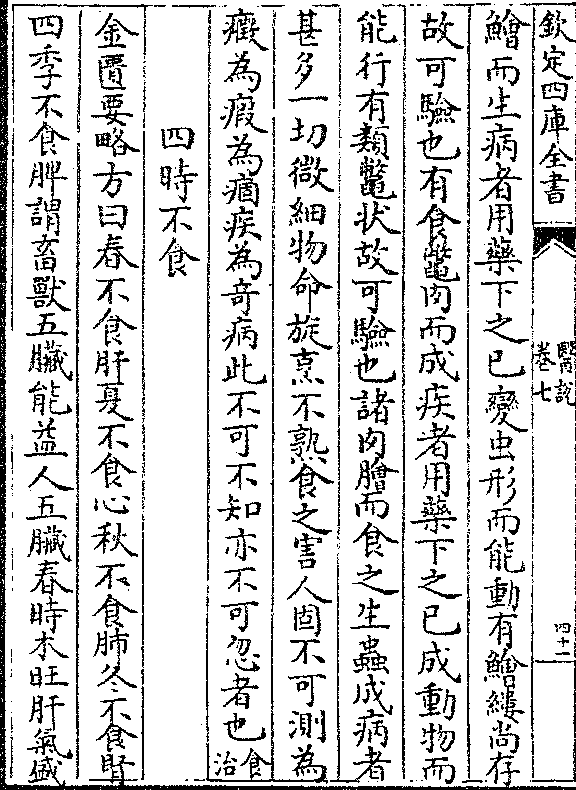 欽定四庫全書
醫說
卷七
四十一
鱠而生病者用藥下之已變虫形而能動有鱠縷尚存
故可驗也有食鼈肉而成疾者用藥下之已成動物而
能行有類鼈状故可驗也諸肉膾而食之生蟲成病者
甚多一切微細物命旋烹不熟食之害人固不可測為
癥為瘕為痼疾為奇病此不可不知亦不可忽者也食治
四時不食
金匱要略方曰春不食肝夏不食心秋不食肺冬不食腎
四季不食脾謂畜獸五臟能益人五臟春時木旺肝氣盛